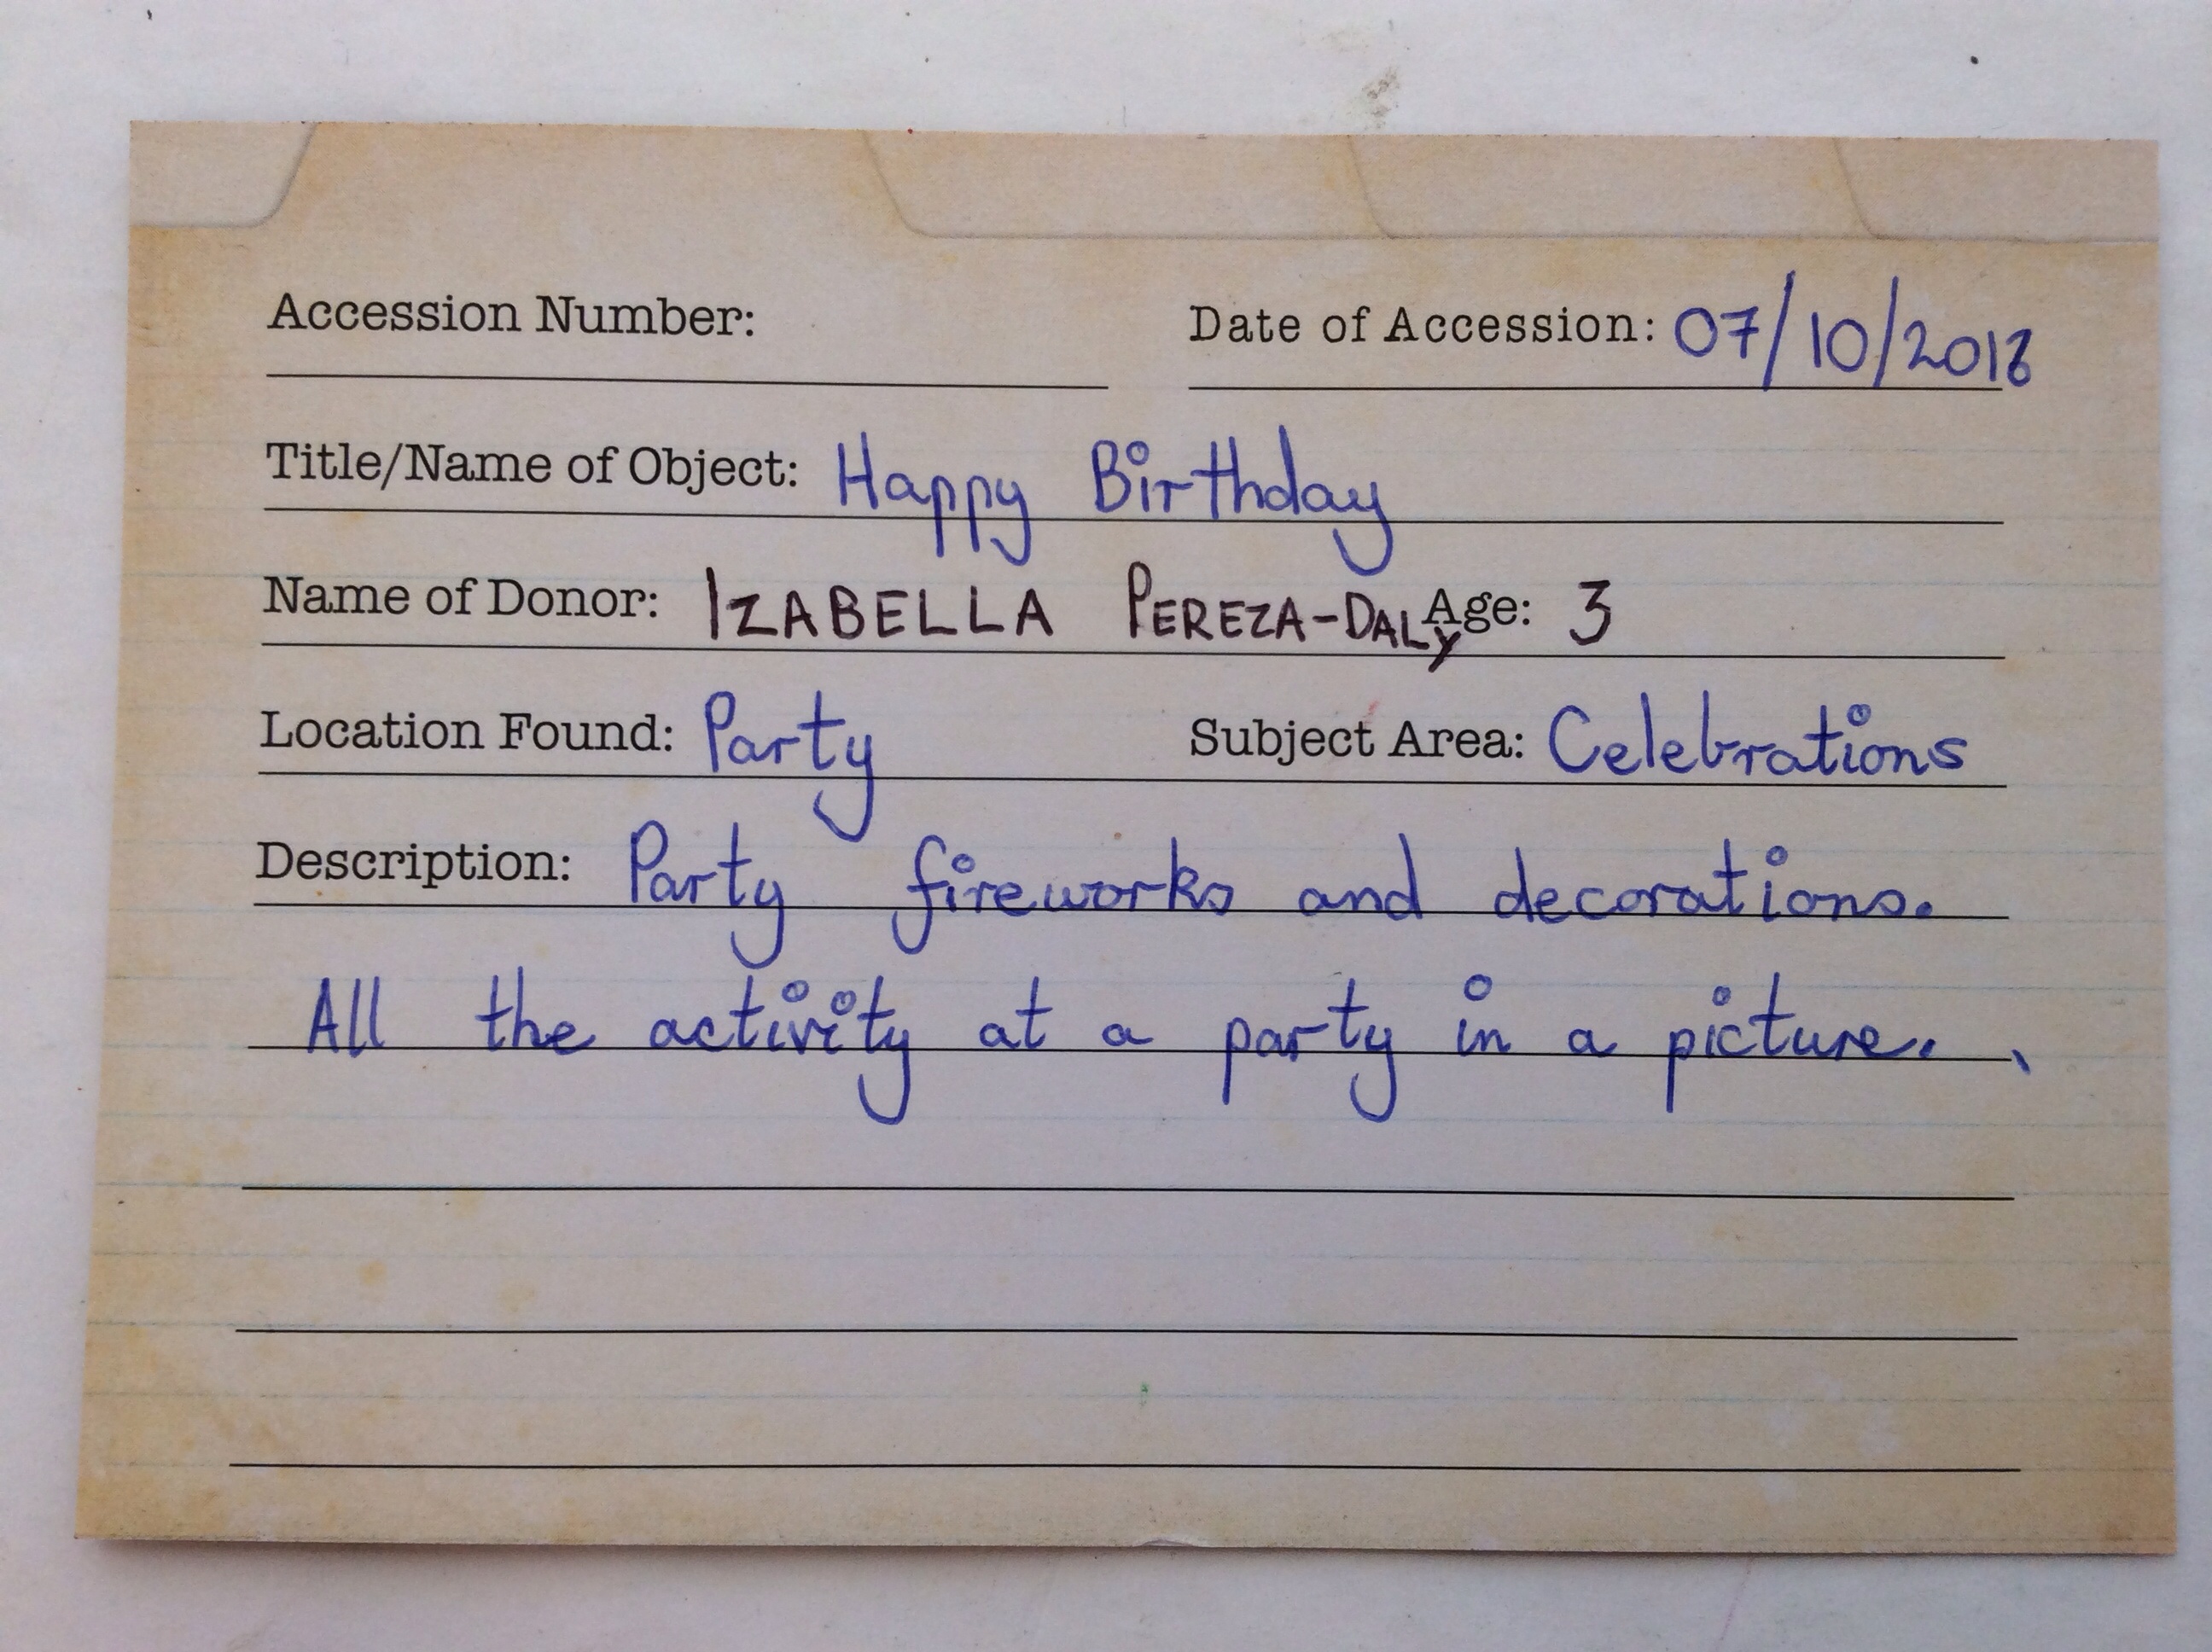 Accession Number: Date of Accession: 07/10/2018
Title/Name of Object: Happy Birthday
Name of Donor: IZABELLA PEREZA-DALY Age: 3
Location Found: Party Subject Area: Celebrations
Description: Party fireworks and decorations.
All the activity at a party in a picture.